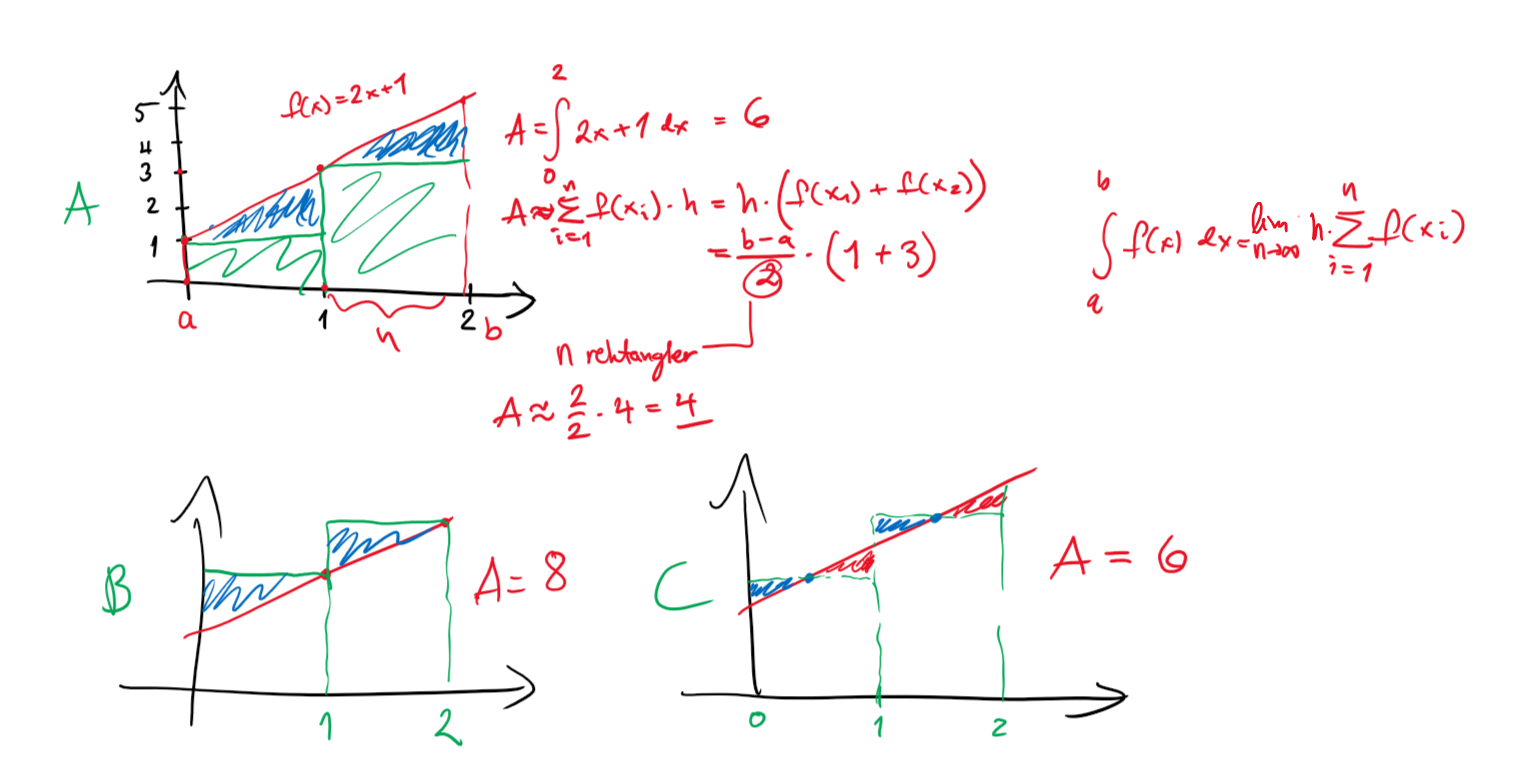 f(x)=2x+1
5
4
3
2
1
A
a
1
h
2 b
A = ∫₀² 2x+1 dx = 6
A ≈ ∑ᵢ₌₁ⁿ f(xᵢ)·h = h·(f(x₁) + f(x₂))
= (b-a)/2 · (1+3)
n rektangler
A ≈ 2/2 · 4 = 4
∫ₐᵇ f(x) dx = lim n→∞ h·∑ᵢ₌₁ⁿ f(xᵢ)
B
A = 8
1 2
C
A = 6
0 1 2